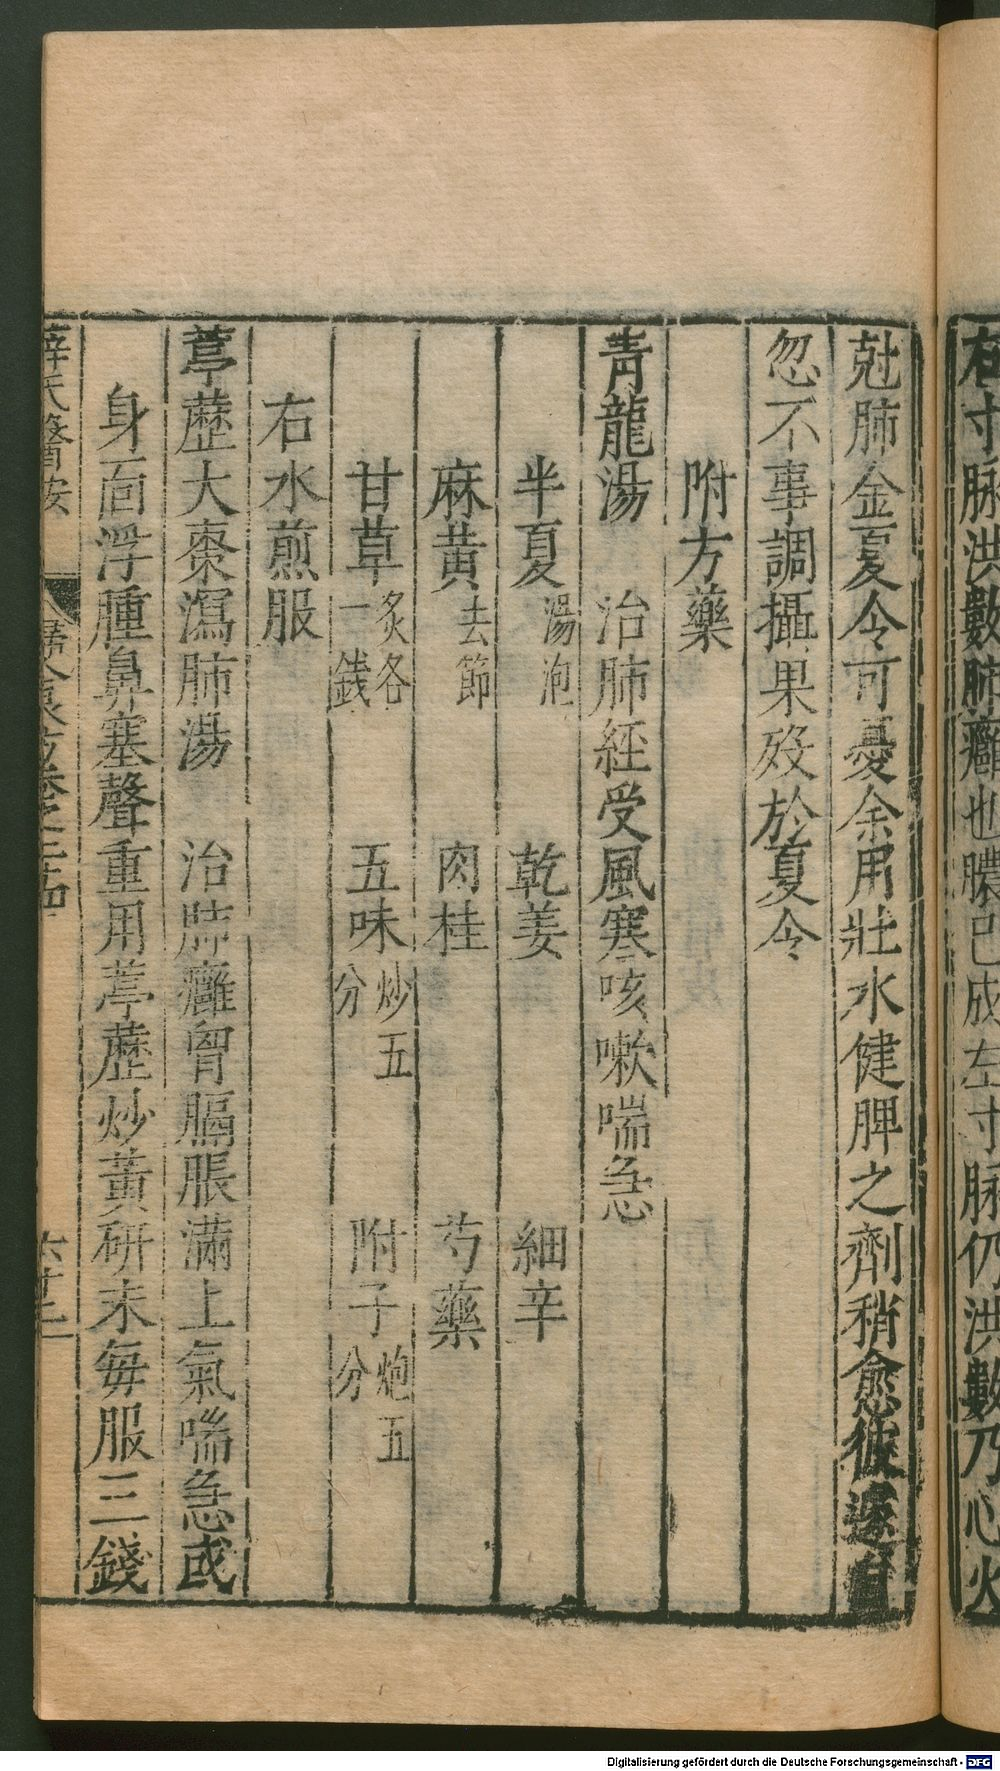 右寸脉洪數肺癰也膿已成左寸脉仍洪數乃心火
尅肺金夏令可憂余用壯水健脾之劑稍愈彼遂自
忽不事調攝果歿於夏令
附方藥
青龍湯　治肺經受風寒咳嗽喘急
半夏湯泡　乾姜　細辛
麻黃去節　肉桂　芍藥
甘草炙各一錢　五味炒五分　附子炮五分
右水煎服
葶藶大棗瀉肺湯　治肺癰胷膈脹滿上氣喘急或
身面浮腫鼻塞聲重用葶藶炒黃研末每服三錢
薛氏醫按　卷之二十四
Digitalisierung gefördert durch die Deutsche Forschungsgemeinschaft - DFG